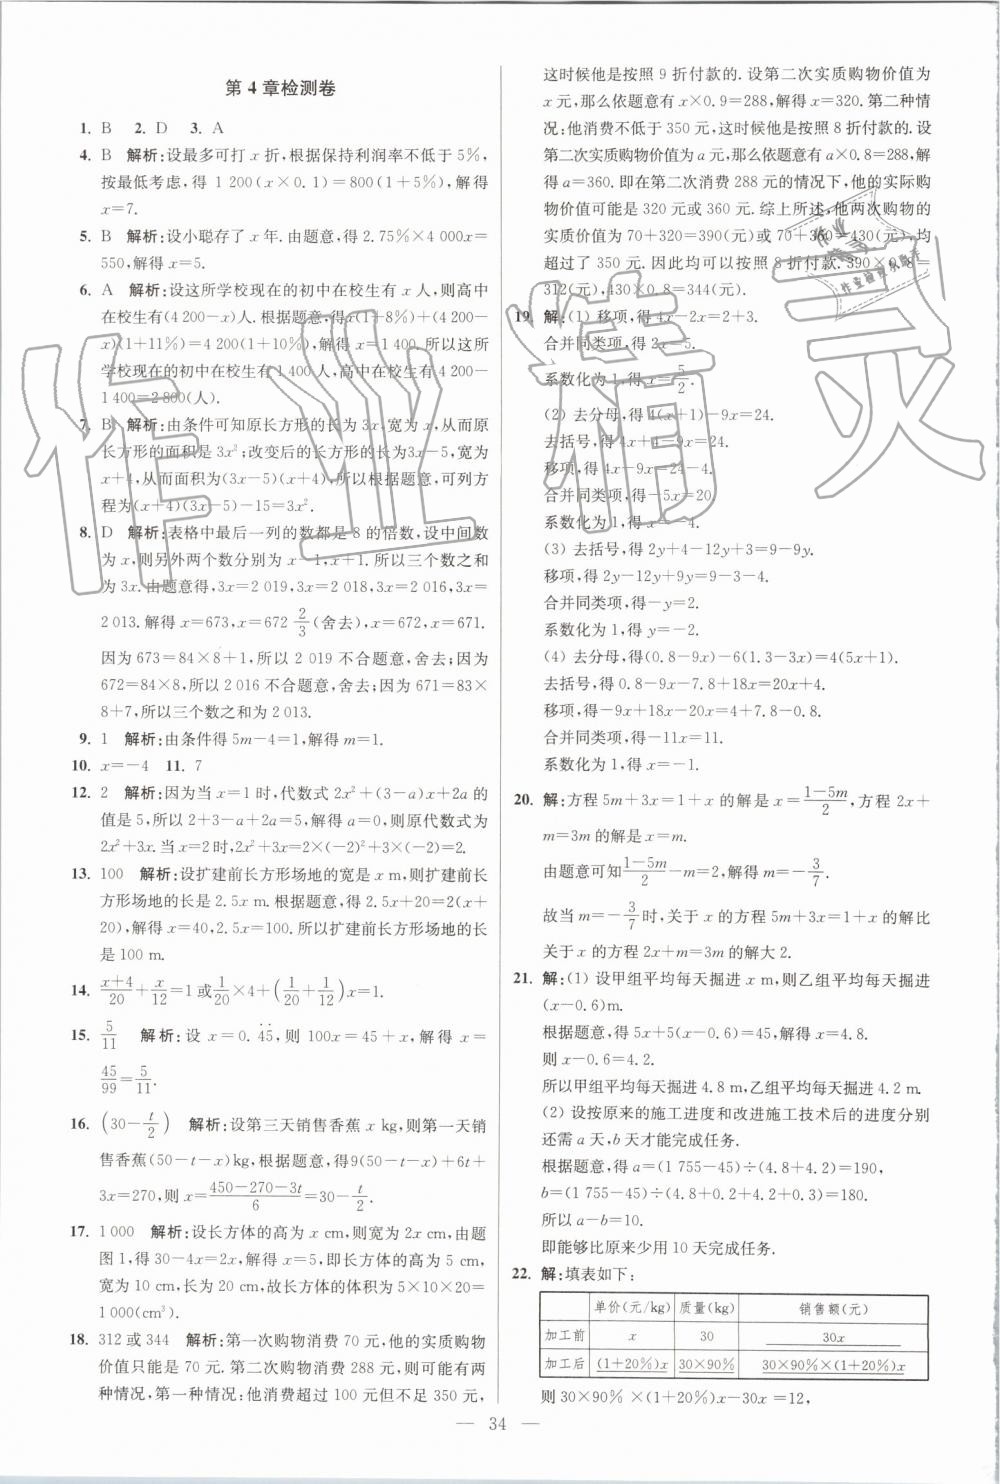 第4章检测卷
1. B 2. D 3. A
4. B 解析:设最多可打 x 折,根据保持利润率不低于5%,
按最低考虑,得 1 200(x×0. 1)=800(1+5%),解得
x=7.
5. B 解析:设小聪存了 x 年. 由题意,得 2. 75%×4 000x=
550,解得 x=5.
6. A 解析:设这所学校现在的初中在校生有 x 人,则高中
在校生有(4 200-x)人. 根据题意,得 x(1+8%)+(4 200-
x)(1+11%)=4 200(1+10%),解得 x=1 400. 所以这所
学校现在的初中在校生有 1 400 人,高中在校生有 4 200-
1 400=2 800(人).
7. B 解析:由条件可知原长方形的长为 3x,宽为 x,从而原
长方形的面积是 3x²;改变后的长方形的长为 3x-5,宽为
x+4,从而面积为(3x-5)(x+4),所以根据题意,可列方
程为(x+4)(3x-5)-15=3x².
8. D 解析:表格中最后一列的数都是 8 的倍数,设中间数
为 x,则另外两个数分别为 x-1,x+1. 所以三个数之和
为 3x. 由题意得,3x=2 019,3x=2 018,3x=2 016,3x=
2 013. 解得 x=673,x=672 2/3(舍去),x=672,x=671.
因为 673=84×8+1,所以 2 019 不合题意,舍去;因为
672=84×8,所以 2 016 不合题意,舍去;因为 671=83×
8+7,所以三个数之和为 2 013.
9. 1 解析:由条件得 5m-4=1,解得 m=1.
10. x=-4 11. 7
12. 2 解析:因为当 x=1 时,代数式 2x²+(3-a)x+2a 的
值是 5,所以 2+3-a+2a=5,解得 a=0,则原代数式为
2x²+3x. 当 x=2 时,2x²+3x=2×(-2)²+3×(-2)=2.
13. 100 解析:设扩建前长方形场地的宽是 x m,则扩建前长
方形场地的长是 2. 5x m. 根据题意,得 2. 5x+20=2(x+
20),解得 x=40,2. 5x=100. 所以扩建前长方形场地的长
是 100 m.
14. (x+4)/20+x/12=1 或 1/20×4+(1/20+1/12)x=1.
15. 5/11 解析:设 x=0. 4̇5̇,则 100x=45+x,解得 x=
45/99=5/11.
16. (30-t/2) 解析:设第三天销售香蕉 x kg,则第一天销
售香蕉(50-t-x)kg,根据题意,得9(50-t-x)+6t+
3x=270,则 x=(450-270-3t)/6=30-t/2.
17. 1 000 解析:设长方体的高为 x cm,则宽为 2x cm,由题
图 1,得 30-4x=2x,解得 x=5,即长方体的高为 5 cm,
宽为 10 cm,长为 20 cm,故长方体的体积为 5×10×20=
1 000(cm³).
18. 312 或 344 解析:第一次购物消费 70 元,他的实质购物
价值只能是 70 元. 第二次购物消费 288 元,则可能有两
种情况,第一种情况:他消费超过 100 元但不足 350 元,
这时候他是按照 9 折付款的. 设第二次实质购物价值为
x 元,那么依题意有 x×0. 9=288,解得 x=320. 第二种情
况:他消费不低于 350 元,这时候他是按照 8 折付款的. 设
第二次实质购物价值为 a 元,那么依题意有 a×0. 8=288,解
得 a=360. 即在第二次消费 288 元的情况下,他的实际购
物价值可能是 320 元或 360 元. 综上所述,他两次购物的
实质价值为 70+320=390(元)或 70+360=430(元),均
超过了 350 元. 因此均可以按照 8 折付款. 390×0. 8=
312(元),430×0. 8=344(元).
19. 解:(1) 移项,得 4x-2x=2+3.
合并同类项,得 2x=5.
系数化为 1,得 x=5/2.
(2) 去分母,得 4(x+1)-9x=24.
去括号,得 4x+4-9x=24.
移项,得 4x-9x=24-4.
合并同类项,得-5x=20.
系数化为 1,得 x=-4.
(3) 去括号,得 2y+4-12y+3=9-9y.
移项,得 2y-12y+9y=9-3-4.
合并同类项,得-y=2.
系数化为 1,得 y=-2.
(4) 去分母,得(0. 8-9x)-6(1. 3-3x)=4(5x+1).
去括号,得 0. 8-9x-7. 8+18x=20x+4.
移项,得-9x+18x-20x=4+7. 8-0. 8.
合并同类项,得-11x=11.
系数化为 1,得 x=-1.
20. 解:方程 5m+3x=1+x 的解是 x=(1-5m)/2,方程 2x+
m=3m 的解是 x=m.
由题意可知(1-5m)/2-m=2,解得 m=-3/7.
故当 m=-3/7时,关于 x 的方程 5m+3x=1+x 的解比
关于 x 的方程 2x+m=3m 的解大 2.
21. 解:(1) 设甲组平均每天掘进 x m,则乙组平均每天掘进
(x-0. 6)m.
根据题意,得 5x+5(x-0. 6)=45,解得 x=4. 8.
则 x-0. 6=4. 2.
所以甲组平均每天掘进 4. 8 m,乙组平均每天掘进 4. 2 m.
(2) 设按原来的施工进度和改进施工技术后的进度分别
还需 a 天,b 天才能完成任务.
根据题意,得 a=(1 755-45)÷(4. 8+4. 2)=190,
b=(1 755-45)÷(4. 8+0. 2+4. 2+0. 3)=180.
所以 a-b=10.
即能够比原来少用 10 天完成任务.
22. 解:填表如下:
单价(元/kg) 质量(kg) 销售额(元)
加工前 x 30 30x
加工后 (1+20%)x 30×90% 30×90%×(1+20%)x
则 30×90%×(1+20%)x-30x=12,
— 34 —
作业精灵